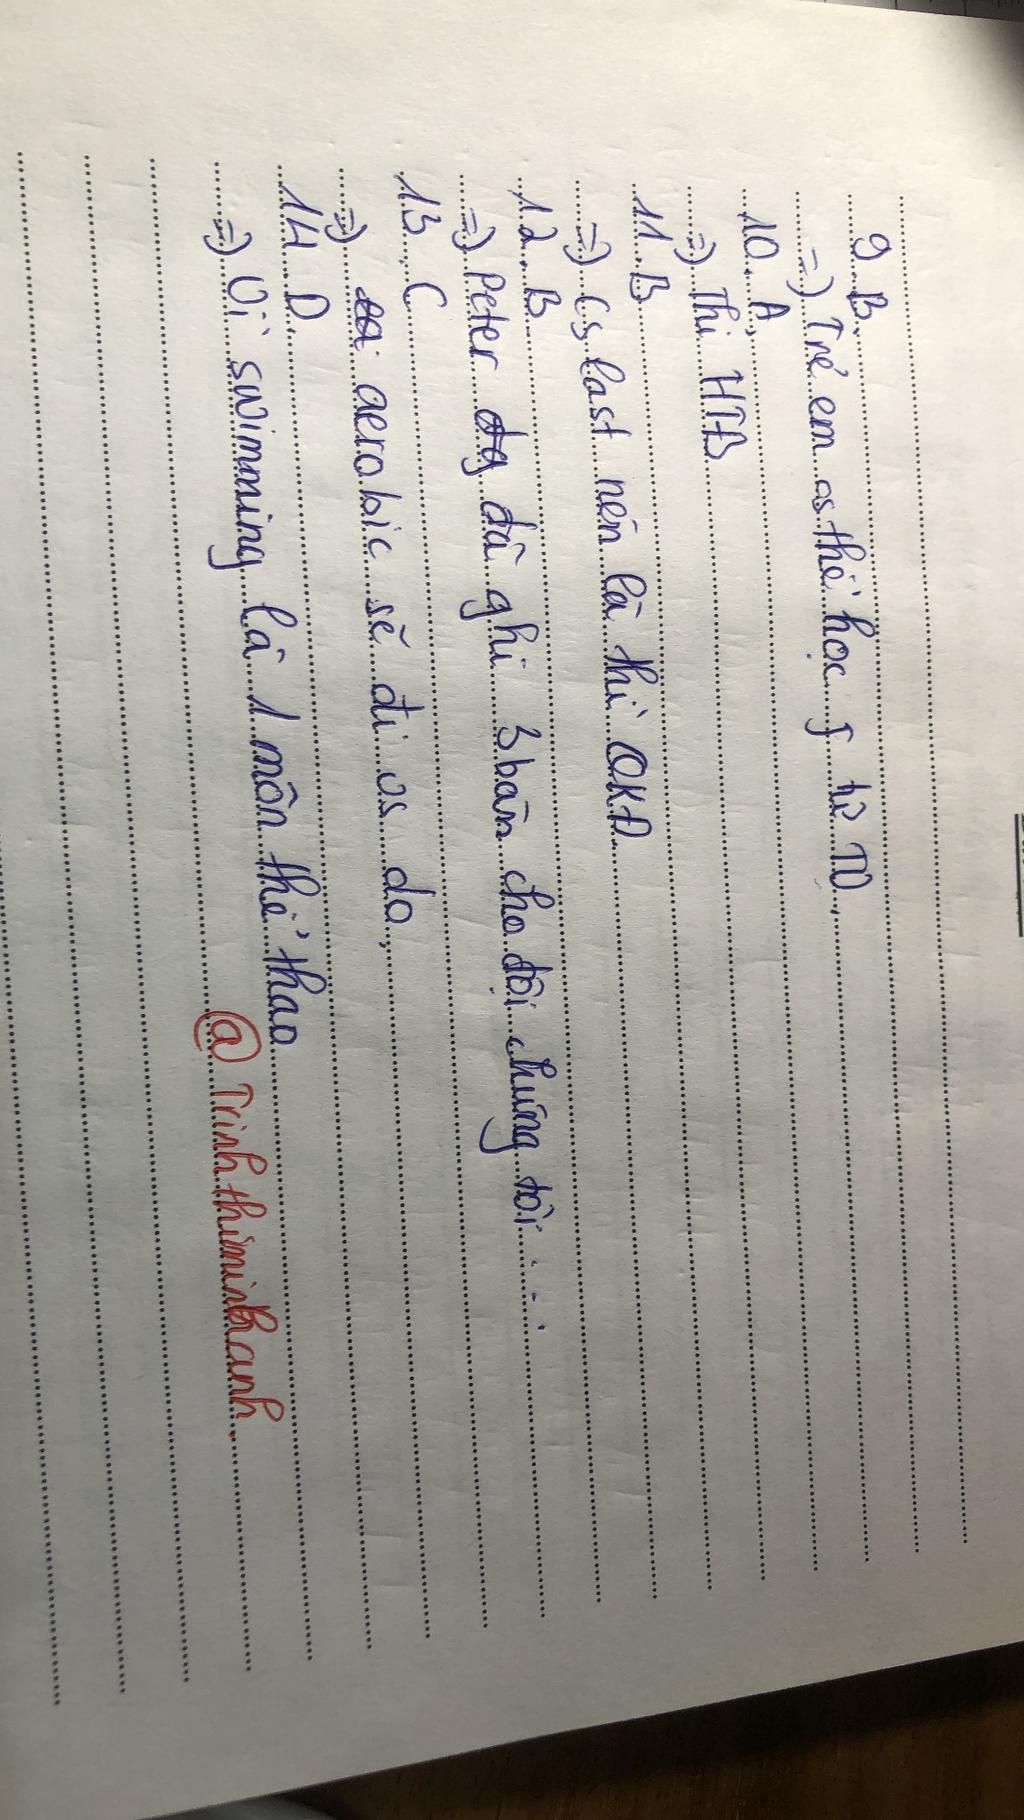 9. B.
=) Trẻ em có thể học j từ TV.
10. A.
=) Thì HTĐ
11. B
=) Có last nên là thì QKĐ.
12. B
=) Peter đã ghi 3 bàn cho đội chúng tôi....
13. C
=) aerobic sẽ đi vs do.
14. D.
=) Vì swimming là 1 môn thể thao
@ Trinhthiminhanh.